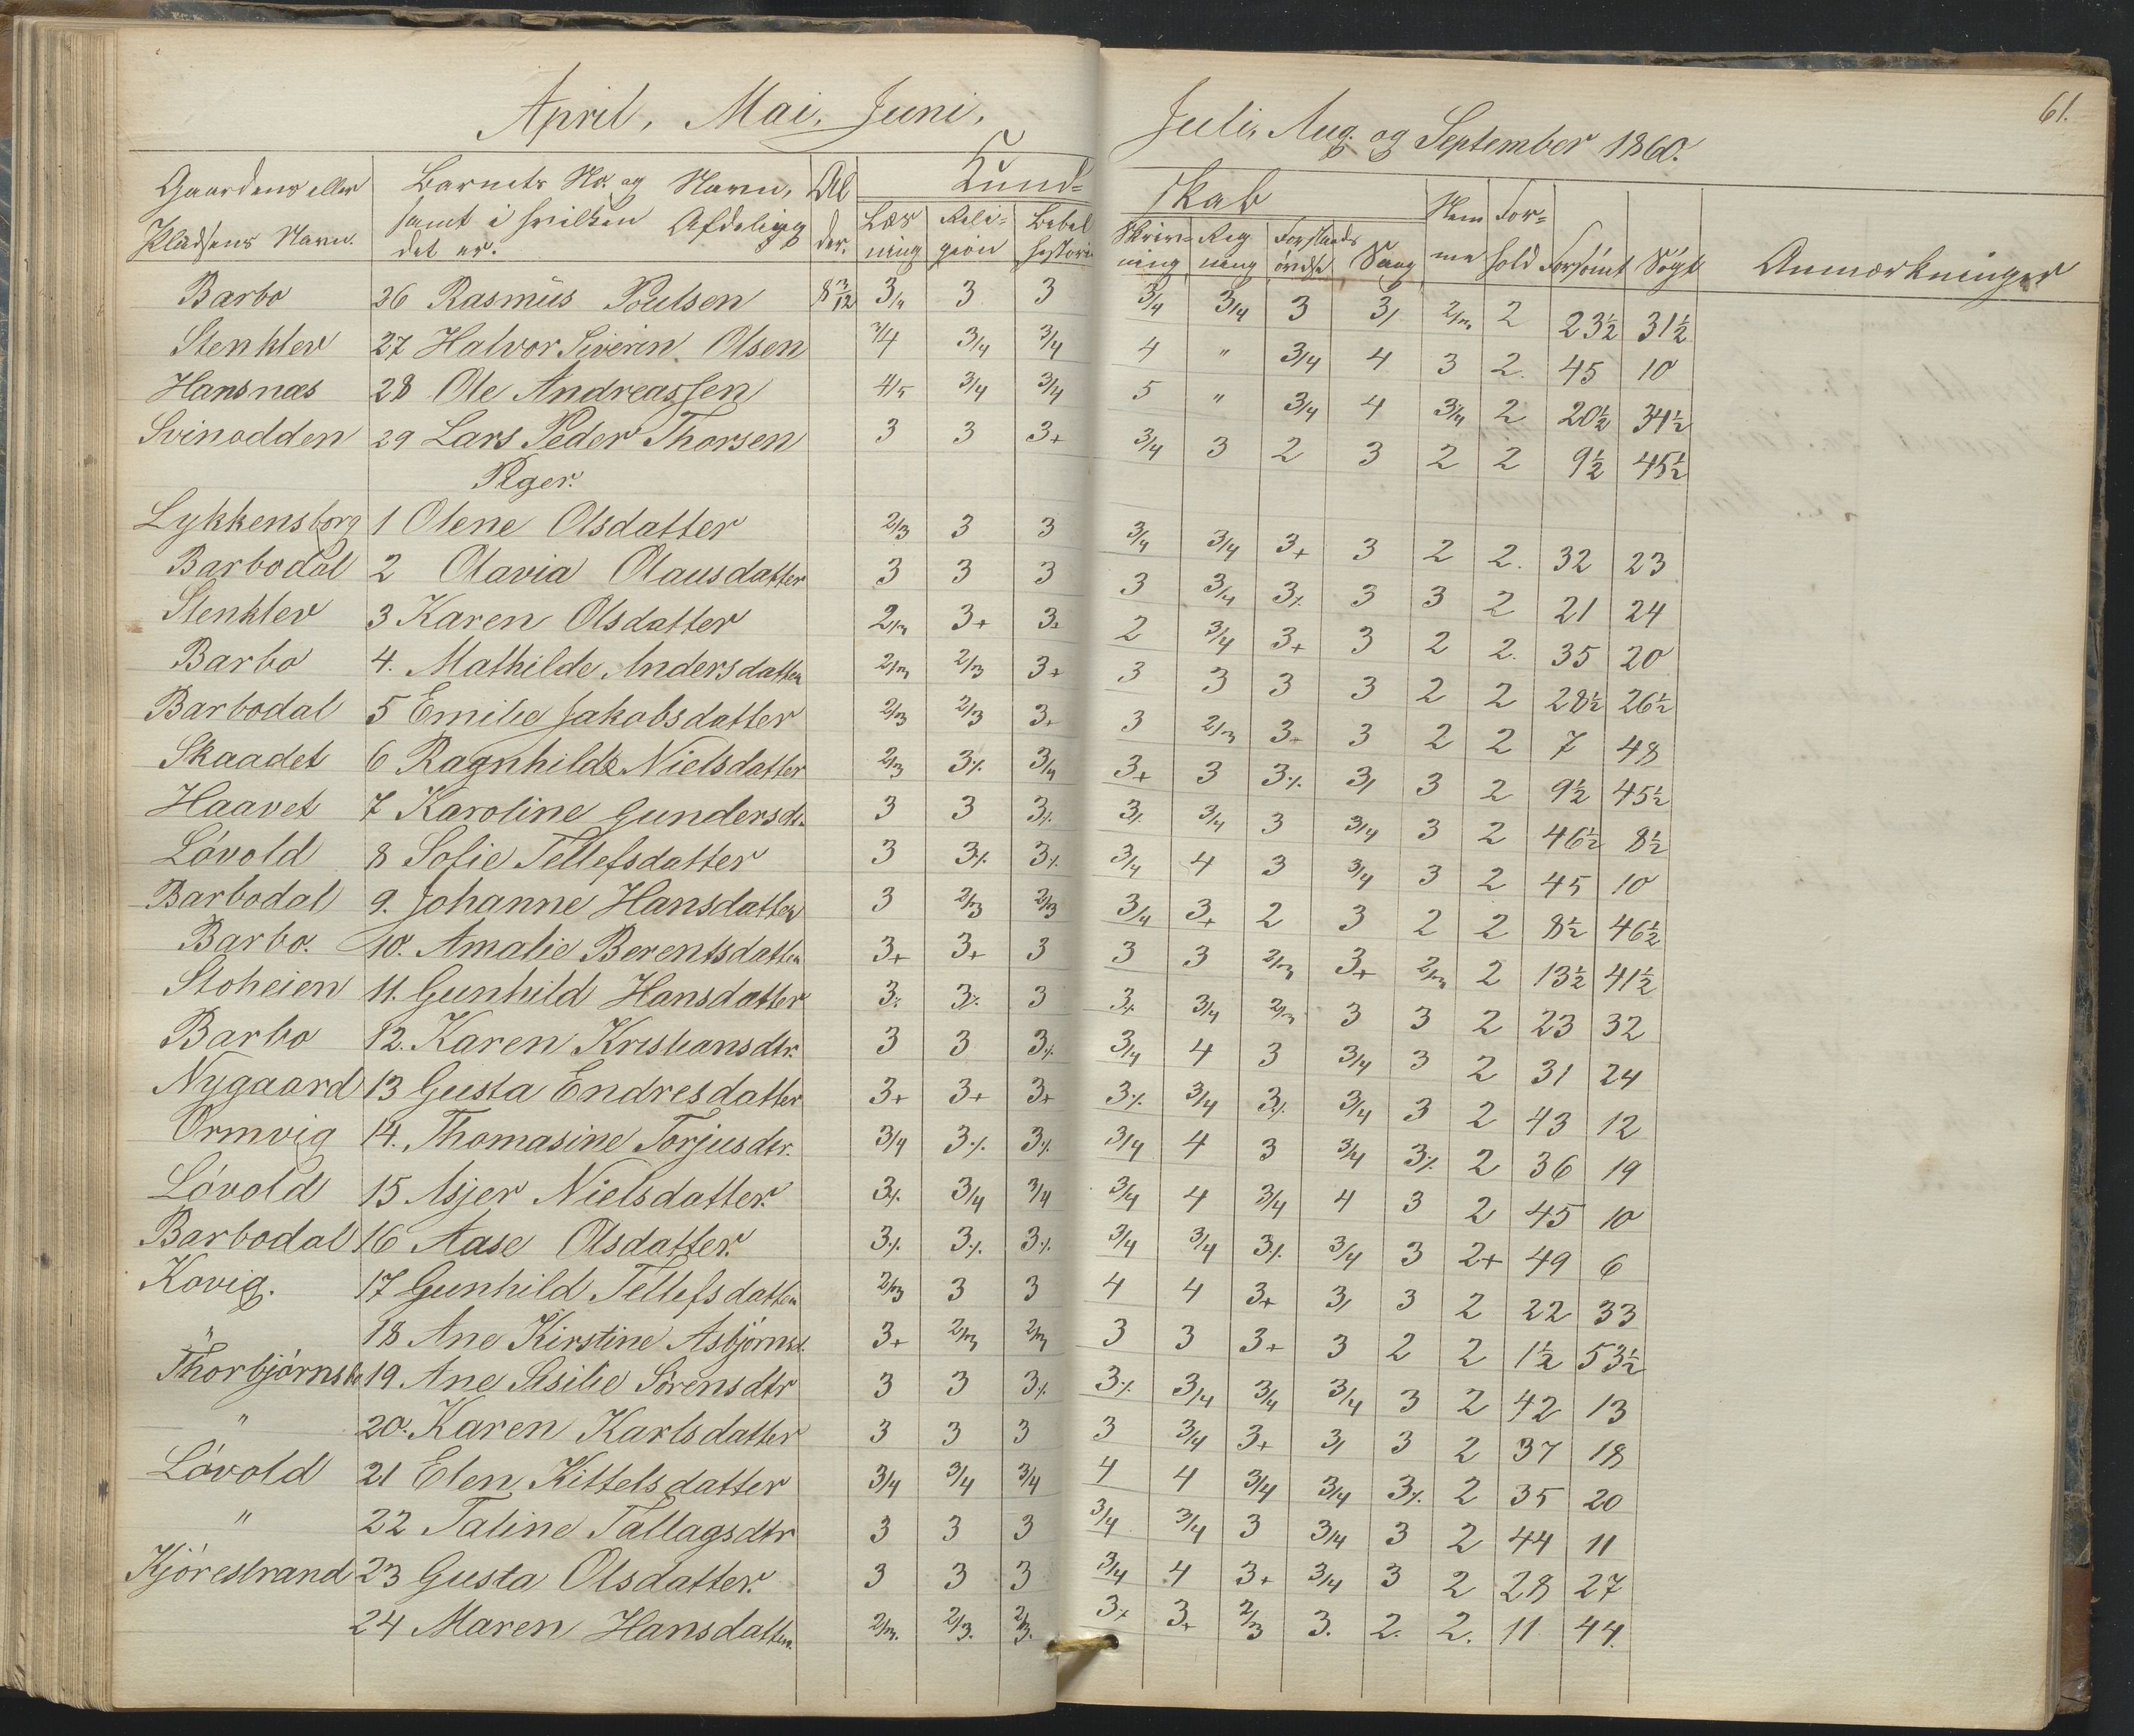 April, Mai, Juni,
Juli, Aug. og September 1860.
61.
Gaardens eller Pladsens Navn.
Barnets No. og Navn, samt i hvilken Afdeling det er.
Alder.
Kundskab
Læsning
Religion
Bibelhistorie
Skrivning
Regning
Forstandsøvelse
Sang
Nemme
Forhold
Forsömt
Sögt
Anmærkninger
Barbo 26 Rasmus Poulsen 8 3/12 3/4 3 3 3/4 3/4 3 3/ 2/3 2 23½ 31½
Stenklev 27 Halvor Siverin Olsen 3/4 3/4 3/4 4 " 3/4 4 3 2. 45 10
Hansnæs 28 Ole Andreassen 4/5 3/4 3/4 5 " 3/4 4 3/4 2 20½ 34½
Svinodden 29 Lars Peder Thorsen 3 3 3+ 3/4 3 2 3 2 2 9½ 45½
Piger.
Lykkensborg 1 Olene Olsdatter 2/3 3 3 3/4 3/4 3+ 3 2 2. 32 23
Barbodal 2 Olavia Olausdatter 3 3 3 3 3/4 3⁒ 3 3 2 21 24
Stenklev 3 Karen Olsdatter 2/3 3+ 3+ 2 3/4 3+ 3 2 2. 35 20
Barbo 4. Mathilde Andersdatter 2/3 2/3 3+ 3 3 3 3 2 2 28½ 26½
Barbodal 5 Emilie Jakobsdatter 2/3 2/3 3+ 3 2/3 3+ 3 2 2 7 48
Skaadet 6 Ragnhilde Nielsdatter 2/3 3⁒ 3/4 3+ 3 3⁒ 3/ 3 2 9½ 45½
Haavet 7 Karoline Gundersdr. 3 3 3⁒ 3⁒ 3/4 3 3/4 3 2 46½ 8½
Lóvold 8 Sofie Tellefsdatter 3 3⁒ 3⁒ 3/4 4 3 3/4 3 2 45 10
Barbodal 9. Johanne Hansdatter 3 2/3 2/3 3/4 3+ 2 3 2 2 8½ 46½
Barbo. 10. Amalie Berentsdatter 3+ 3+ 3 3 3 2/3 3+ 2/3 2 13½ 41½
Stoheien 11. Gunhild Hansdatter 3⁒ 3⁒ 3 3⁒ 3/4 2/3 3 3 2 23 32
Barbo 12. Karen Kristiansdtr. 3 3 3⁒ 3/4 4 3 3/4 3 2 31 24
Nygaard 13 Gusta Endresdatter 3+ 3+ 3+ 3⁒ 3/4 3⁒ 3/4 3 2 43 12
Ormvig 14. Thomasine Torjusdtr. 3/4 3⁒ 3⁒ 3/4 4 3 3/4 3⁒ 2 36 19
Lóvold 15 Asjer Nielsdatter. 3⁒ 3/4 3/4 3/4 4 3/4 4 3 2 45 10
Barbodal 16 Aase Olsdatter. 3⁒ 3⁒ 3⁒ 3/4 3/4 3⁒ 3/4 3 2+ 49 6
Kovig. 17 Gunhild Tellefsdatter 2/3 3 3 4 4 3+ 3/ 3 2 22 33
" 18 Ane Kirstine Asbjörnsd. 3+ 2/3 2/3 3 3 3+ 3 2 2 1½ 53½
Thorbjórnsbo 19 Ane Sisilie Sörensdtr 3 3 3⁒ 3⁒ 3/4 3/4 3/4 3 2 42 13
" 20. Karen Karlsdatter 3 3 3 3 3/4 3+ 3/ 3 2 37 18
Lóvold 21 Elen Kittelsdatter 3/4 3/4 3/4 4 4 3/4 3/4 3⁒ 2 35 20
" 22 Taline Tallagsdtr 3 3 3 3/4 3/4 3 3/4 3 2 44 11
Kjórestrand 23 Gusta Olsdatter. 3 3 3 3/4 4 3+ 3/4 3 2 28 27
24 Maren Hansdatter. 2/3. 2/3. 2/3. 3+ 3+ 2/3 3. 2. 2. 11 44.